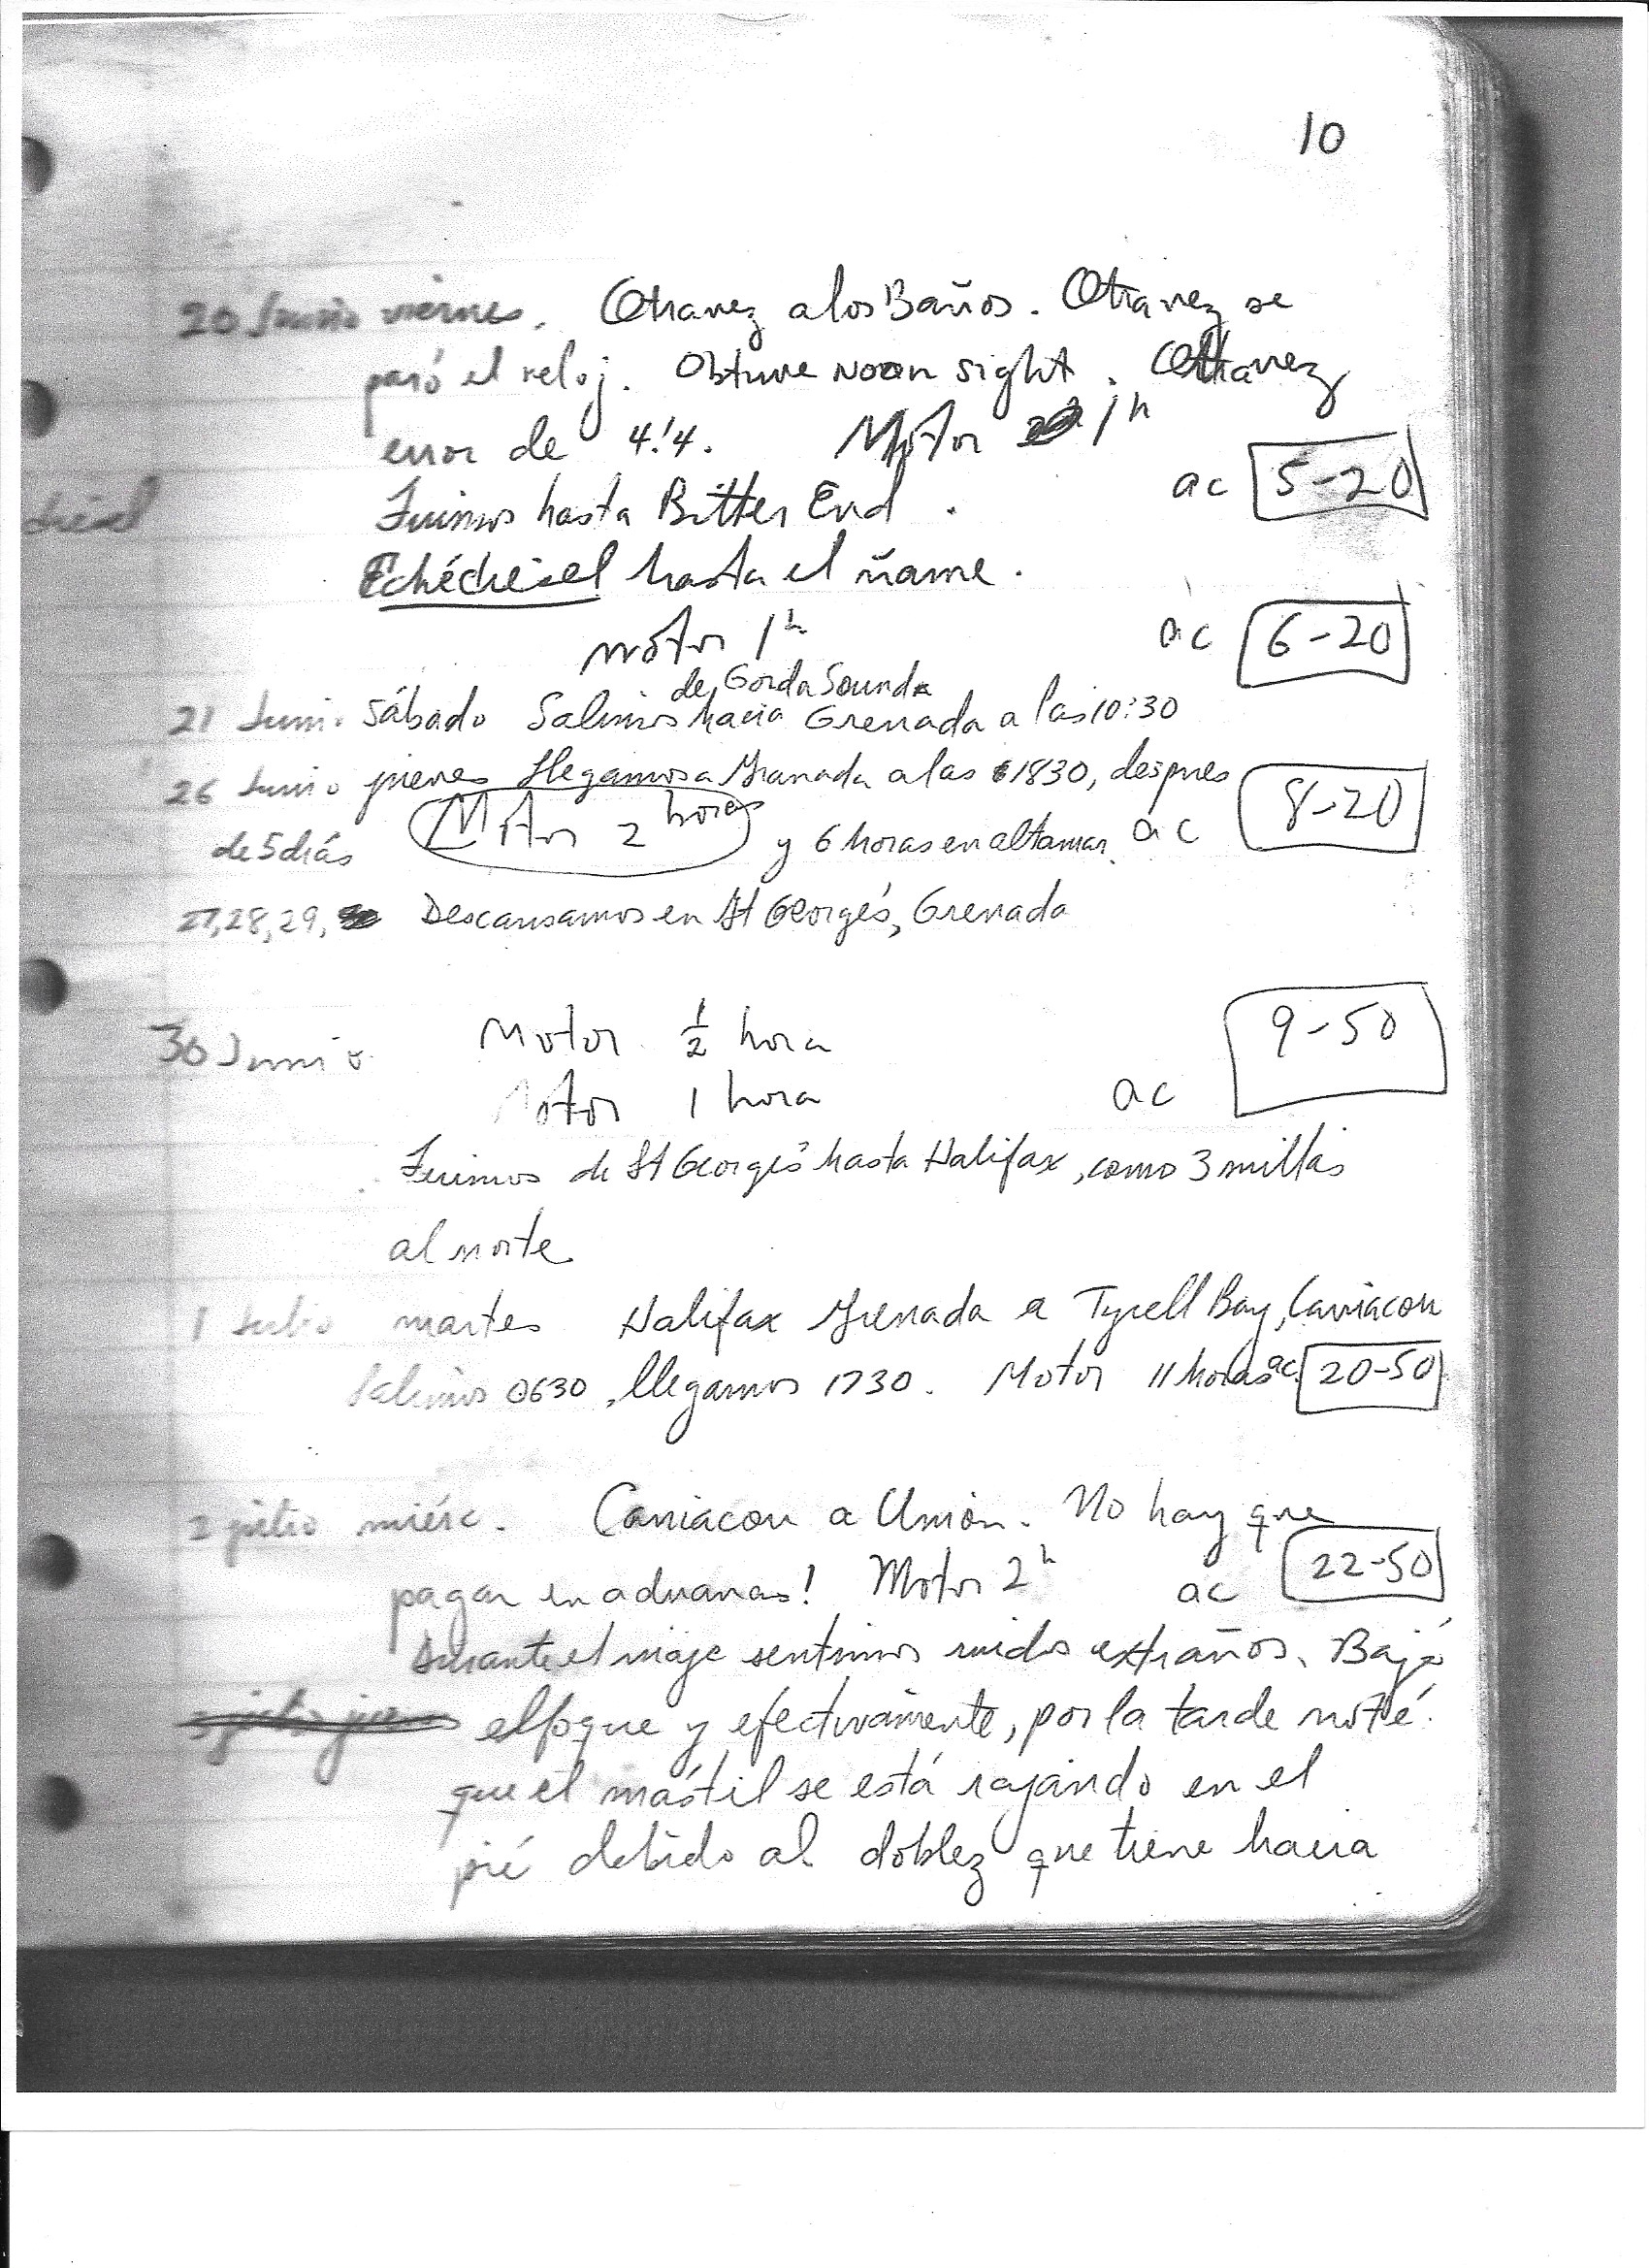 10
20 Junio viernes. Otravez a los Baños. Otravez se
paró el reloj. Obtuve noon sight. Otravez
error de 4.'4. Motor 1h
ac 5-20
diesel
Fuimos hasta Bitter End.
Eché diesel hasta el ñame.
motor 1h
ac 6-20
de Gorda Sound
21 Junio sábado Salimos hacia Grenada a las 10:30
26 Junio jueves Llegamos a Granada a las 1830, despues
de 5 diás Motor 2 horas y 6 horas en altamar. ac 8-20
27, 28, 29, Descansamos en St George's, Grenada
30 Junio Motor 1/2 hora
9-50
Motor 1 hora ac
Fuimos de St George's hasta Halifax, como 3 millas
al norte
1 Julio martes Halifax Grenada a Tyrell Bay, Carriacou
Salimos 0630, llegamos 1730. Motor 11 horas ac. 20-50
2 julio miérc. Carriacou a Unión. No hay que
pagar en aduanas! Motor 2h ac 22-50
Durante el viaje sentimos ruidos extraños. Bajé
el foque y efectivamente, por la tarde noté
que el mástil se está rajando en el
pié debido al doblez que tiene hacia